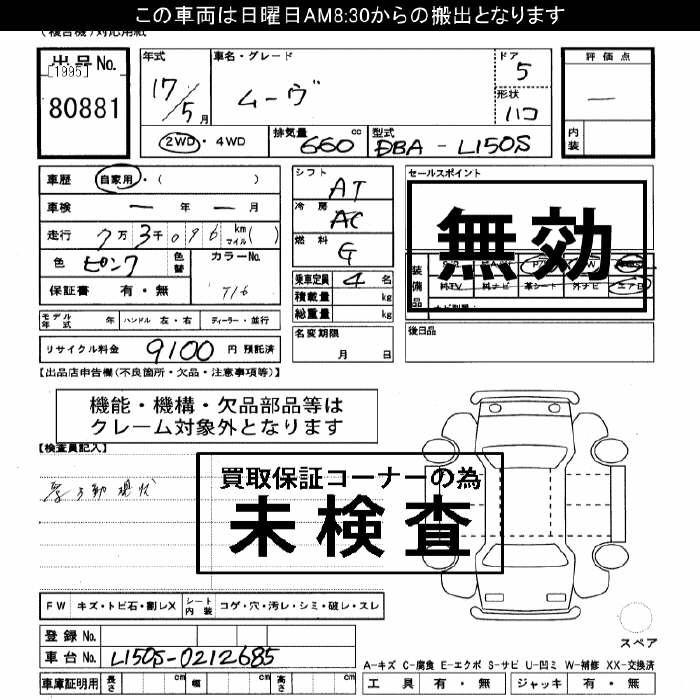 この車両は日曜日AM8:30からの搬出となります
(複合機)対応用紙
出品No.
[1995]
80881
年式
17/5月
車名・グレード
ムーヴ
ドア
5
形状
ハコ
評価点
—
内装
2WD・4WD
排気量 660 cc
型式 DBA - L150S
車歴 自家用・( )
車検 — 年 — 月
走行 7万3千096 km マイル( )
色 ピンク 色替 カラーNo.
保証書 有・無 T16
モデル年式 年 ハンドル 左・右 ディーラー・並行
リサイクル料金 9100 円 預託済
シフト AT
冷房 AC
燃料 G
乗車定員 4 名
積載量 kg
総重量 kg
名変期限
月 日
セールスポイント
無効
装備品
純TV 純ナビ 革シート 外ナビ エアB
後日品
【出品店申告欄(不良箇所・欠品・注意事項等)】
機能・機構・欠品部品等は
クレーム対象外となります
【検査員記入】
買取保証コーナーの為
未検査
現状
FW キズ・トビ石・割レX シート内装 コゲ・穴・汚レ・シミ・破レ・スレ
登録No.
車台No. L150S-0212685
車庫証明用 長さ cm 幅 cm 高さ cm
スペア
A-キズ C-腐食 E-エクボ S-サビ U-凹ミ W-補修 XX-交換済
工具 有・無 ジャッキ 有・無